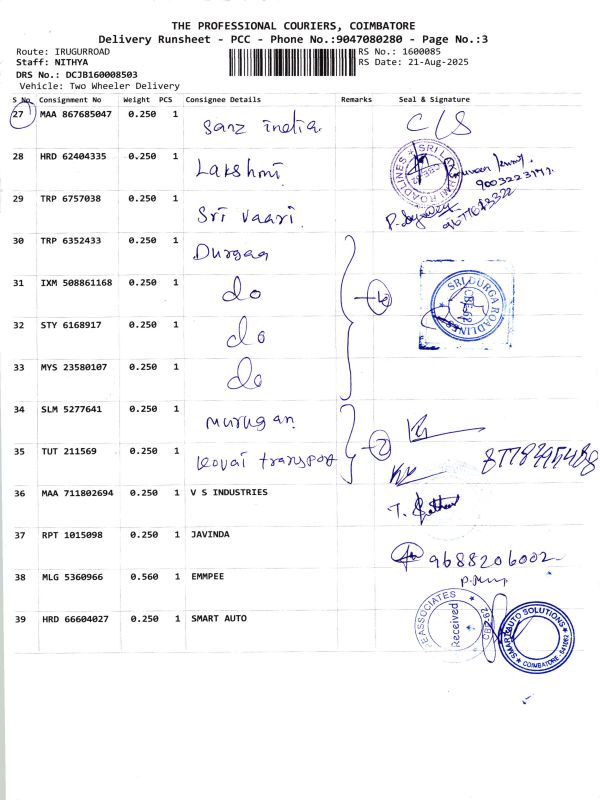 THE PROFESSIONAL COURIERS, COIMBATORE
Delivery Runsheet - PCC - Phone No.:9047080280 - Page No.:3
Route: IRUGURROAD RS No.: 1600085
Staff: NITHYA RS Date: 21-Aug-2025
DRS No.: DCJB160008503
Vehicle: Two Wheeler Delivery
S No. Consignment No Weight PCS Consignee Details Remarks Seal & Signature
27 MAA 867685047 0.250 1 Sanz india C/S
28 HRD 62404335 0.250 1 Lakshmi 9003223171
29 TRP 6757038 0.250 1 Sri Vaari
30 TRP 6352433 0.250 1 Durgaa
31 IXM 508861168 0.250 1 do 4 SRI DURGA ROADLINES
32 STY 6168917 0.250 1 do
33 MYS 23580107 0.250 1 do
34 SLM 5277641 0.250 1 murugan
35 TUT 211569 0.250 1 kovai transport 2
36 MAA 711802694 0.250 1 V S INDUSTRIES
37 RPT 1015098 0.250 1 JAVINDA 9688206002
38 MLG 5360966 0.560 1 EMMPEE
39 HRD 66604027 0.250 1 SMART AUTO Received SMART AUTO SOLUTIONS